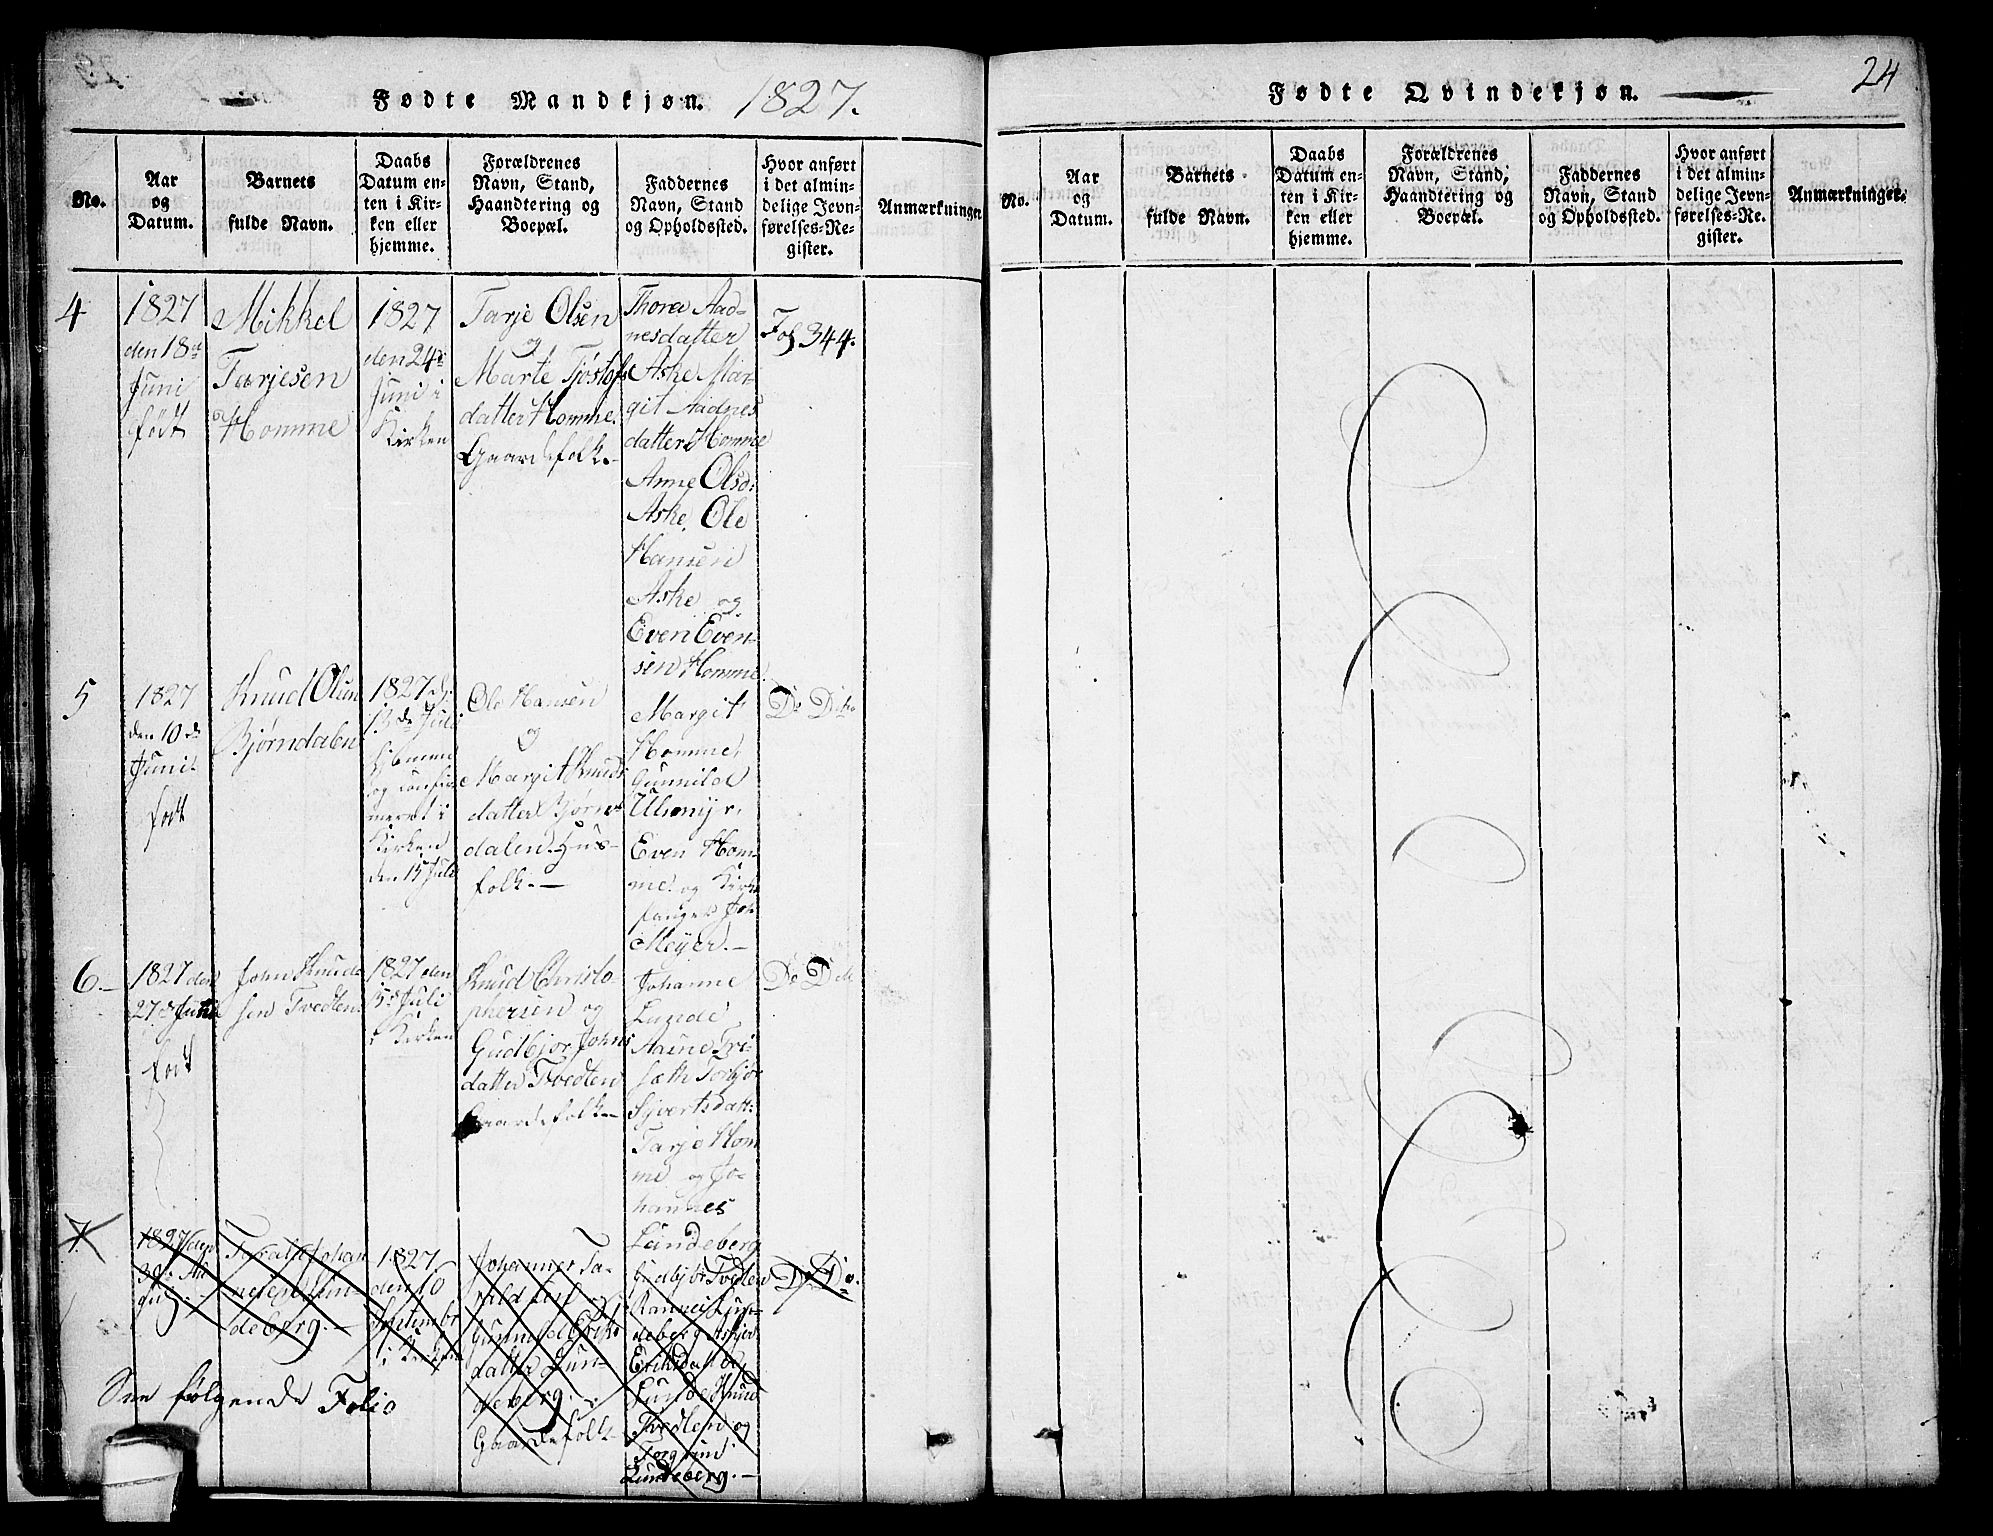 Fødte Mandkjøn. 1827.
No.
Aar
og
Datum.
Barnets
fulde Navn.
Daabs
Datum en-
ten i Kir-
ken eller
hjemme.
Forældrenes
Navn, Stand,
Haandtering og
Boepæl.
Faddernes
Navn, Stand
og Opholdssted.
Hvor anført
i det almin-
delige Jevn-
førelses-Re-
gister.
Anmærkninger
4
1827
den 18de
Juni
født
Mikkel
Tarjesen
Homme
1827
den 24de
Juni i
Kirken
Tarje Olsen
og
Marte Tjøstofs
datter Homme.
Gaardefolk.-
Thorer Aad-
nesdatter
Aske Mar-
git Aadnes
datter Homme
Anne Olsd:
Aske, Ole
Hansen
Aske og
Even Even-
sen Homme
Fol 344.
5
1827
den 10de
Juni
født
Knud Olsen
Bjørndalen
1827 d:
13de Juli
hjemme
og confir-
meret i
Kirken
den 15 Juli
Ole Hansen
og
Margit Knuds
datter Bjørn-
dalen. Hus-
folk.-
Margit
Homme,
Gunnild
Ulsmyr,
Even Hom-
me og Kirke
sanger Joh
Meyer.-
Do Dito
6.-
1827 den
27de Juni
født
John Knud-
sen Tvedten
1827 den
15de Juli
i Kirken
Knud Christo-
phersen og
Gudbjør Johns
datter Tvedten
Gaardefolk.-
Johanne
Lunde
Aasne Tvi-
sæth Torbjør
Syvertsdatt:
Tarje Hom
me og Jo-
hannes
Lundeberg
Do Dito
7.
1827 den
Tarald Johan
nesen Lun-
deberg.-
1827
den 16
Septembr
i Kirken
Johannes Ta-
rald sen og
Gunnild Eriks
datter Lun-
deberg.
Gaardefolk-
Gudbjør Tvedten
Rannei Lun-
deberg Asbjør
Eriksdatter
Lunde Knud
Tvedten og
Torgrim
Lundeberg.-
Do Do.
See følgende Folio
Fødte Qvindekjøn.
24
No.
Aar
og
Datum.
Barnets
fulde Navn.
Daabs
Datum en-
ten i Kir-
ken eller
hjemme.
Forældrenes
Navn, Stand,
Haandtering og
Boepæl.
Faddernes
Navn, Stand
og Opholdssted.
Hvor anført
i det almin-
delige Jevn-
førelses-Re-
gister.
Anmærkninger.